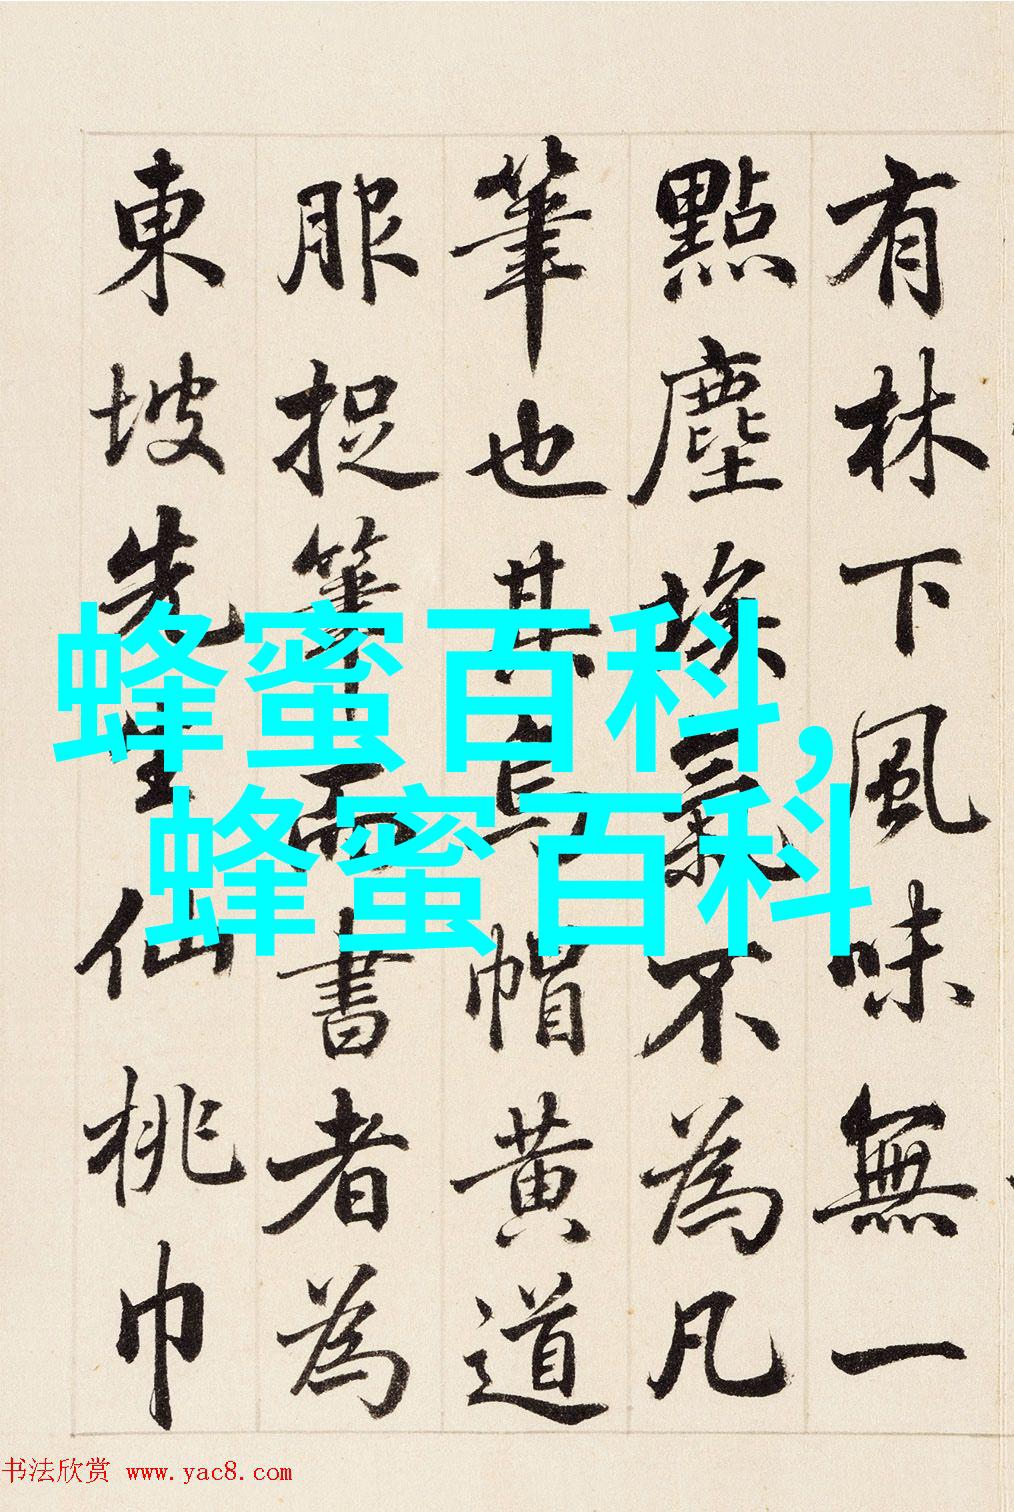 有林下風味無一
點塵埃氣不為凡
筆也其烏帽黃道
服捉筆而書者為
東坡先生仙桃巾
蜂蜜百科,
蜂蜜百科
书法欣赏 www.yac8.com